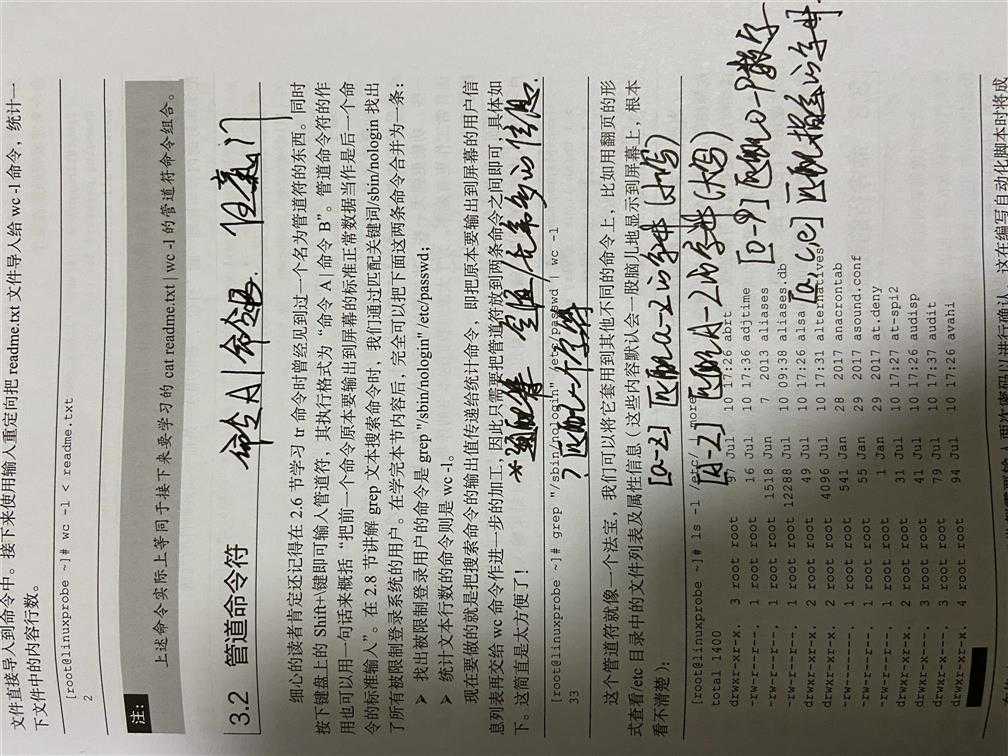 文件直接导入到命令中。接下来使用输入重定向把 readme.txt 文件导入给 wc -l 命令，统计一
下文件中的内容行数。
[root@linuxprobe ~]# wc -l < readme.txt
2
注：
上述命令实际上等同于接下来要学习的 cat readme.txt | wc -l 的管道符命令组合。
3.2 管道命令符
命令A | 命令B
细心的读者肯定还记得在 2.6 节学习 tr 命令时曾经见到过一个名为管道符的东西。同时
按下键盘上的 Shift+\键即可输入管道符，其执行格式为“命令 A | 命令 B”。管道命令符的作
用也可以用一句话来概括“把前一个命令原本要输出到屏幕的标准正常数据当作是后一个命
令的标准输入”。在 2.8 节讲解 grep 文本搜索命令时，我们通过匹配关键词/sbin/nologin 找出
了所有被限制登录系统的用户。在学完本节内容后，完全可以把下面这两条命令合并为一条：
➢ 找出被限制登录用户的命令是 grep "/sbin/nologin" /etc/passwd；
➢ 统计文本行数的命令则是 wc -l。
现在要做的就是把搜索命令的输出值传递给统计命令，即把原本要输出到屏幕的用户信
息列表再交给 wc 命令作进一步的加工，因此只需要把管道符放到两条命令之间即可，具体如
下。这简直是太方便了！
[root@linuxprobe ~]# grep "/sbin/nologin" /etc/passwd | wc -l
33
? 匹配一个字符
这个管道符就像一个法宝，我们可以将它套用到其他不同的命令上，比如用翻页的形
式查看/etc 目录中的文件列表及属性信息（这些内容默认会一股脑儿地显示到屏幕上，根本
看不清楚）：
[a-z] 匹配a-z的字母 (小写)
[A-Z] 匹配A-Z的字母(大写)
[0-9] 匹配0-9数字
[a,c,e] 匹配描述的字母
[root@linuxprobe ~]# ls -l /etc/ | more
total 1400
drwxr-xr-x. 3 root root 97 Jul 10 17:26 abrt
-rw-r--r--. 1 root root 16 Jul 10 17:36 adjtime
-rw-r--r--. 1 root root 1518 Jun 7 2013 aliases
-rw-r--r--. 1 root root 12288 Jul 10 09:38 aliases.db
drwxr-xr-x. 2 root root 49 Jul 10 17:26 alsa
drwxr-xr-x. 2 root root 4096 Jul 10 17:31 alternatives
-rw-------. 1 root root 541 Jan 28 2017 anacrontab
-rw-r--r--. 1 root root 55 Jan 29 2017 asound.conf
-rw-r--r--. 1 root root 1 Jan 29 2017 at.deny
drwxr-xr-x. 2 root root 31 Jul 10 17:27 at-spi2
drwxr-x---. 3 root root 41 Jul 10 17:26 audisp
drwxr-x---. 3 root root 79 Jul 10 17:37 audit
drwxr-xr-x. 4 root root 94 Jul 10 17:26 avahi